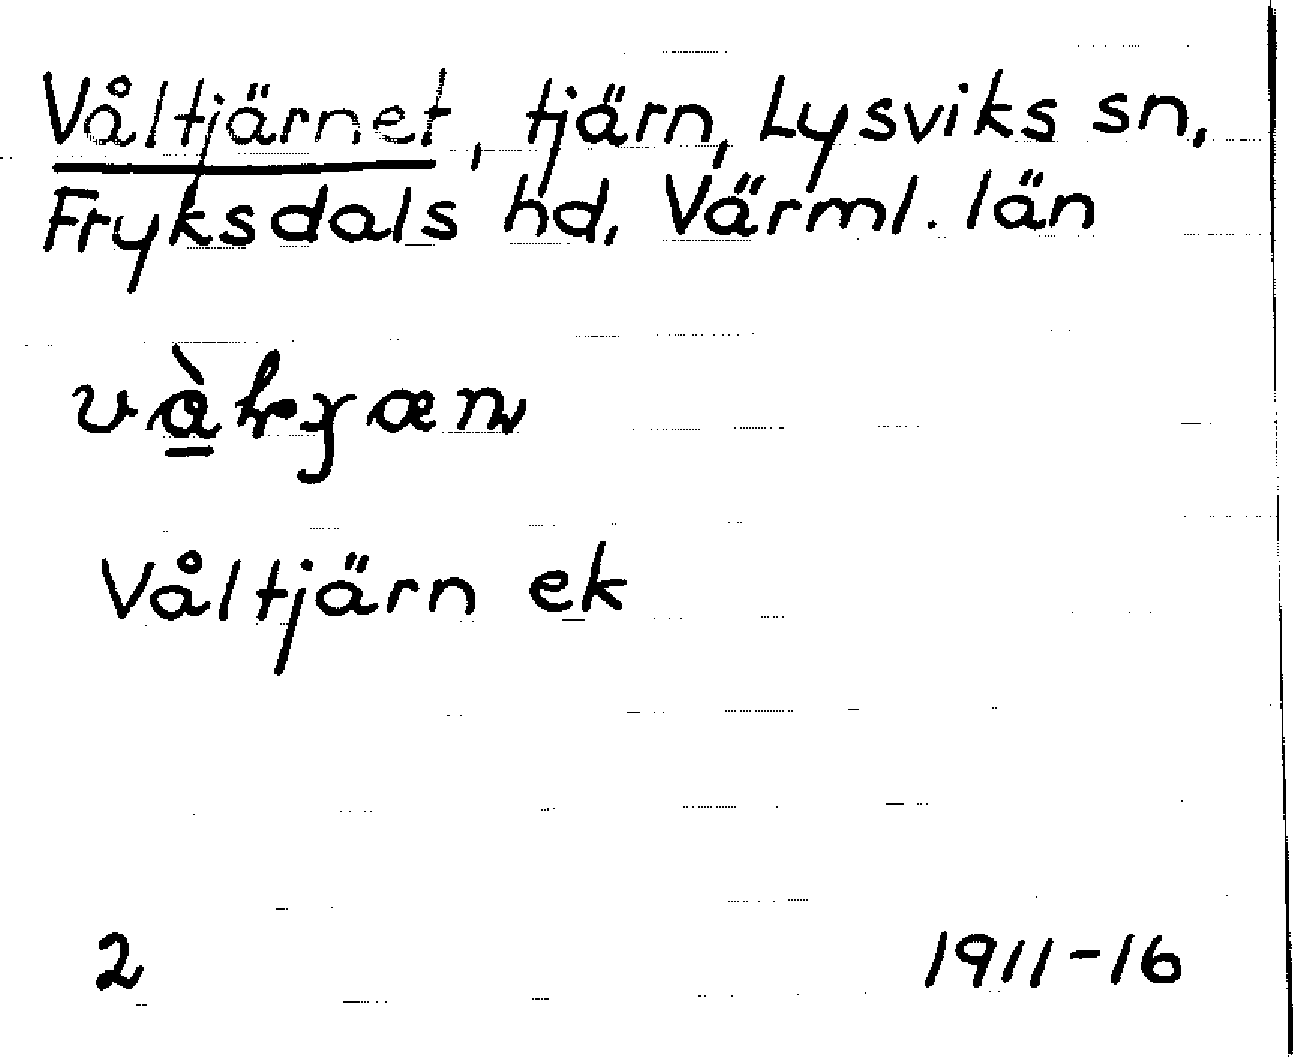 Våltjärnet, tjärn, Lysviks sn,
Fryksdals hd, Värml. län
Våltjärn ek
2 1911-16